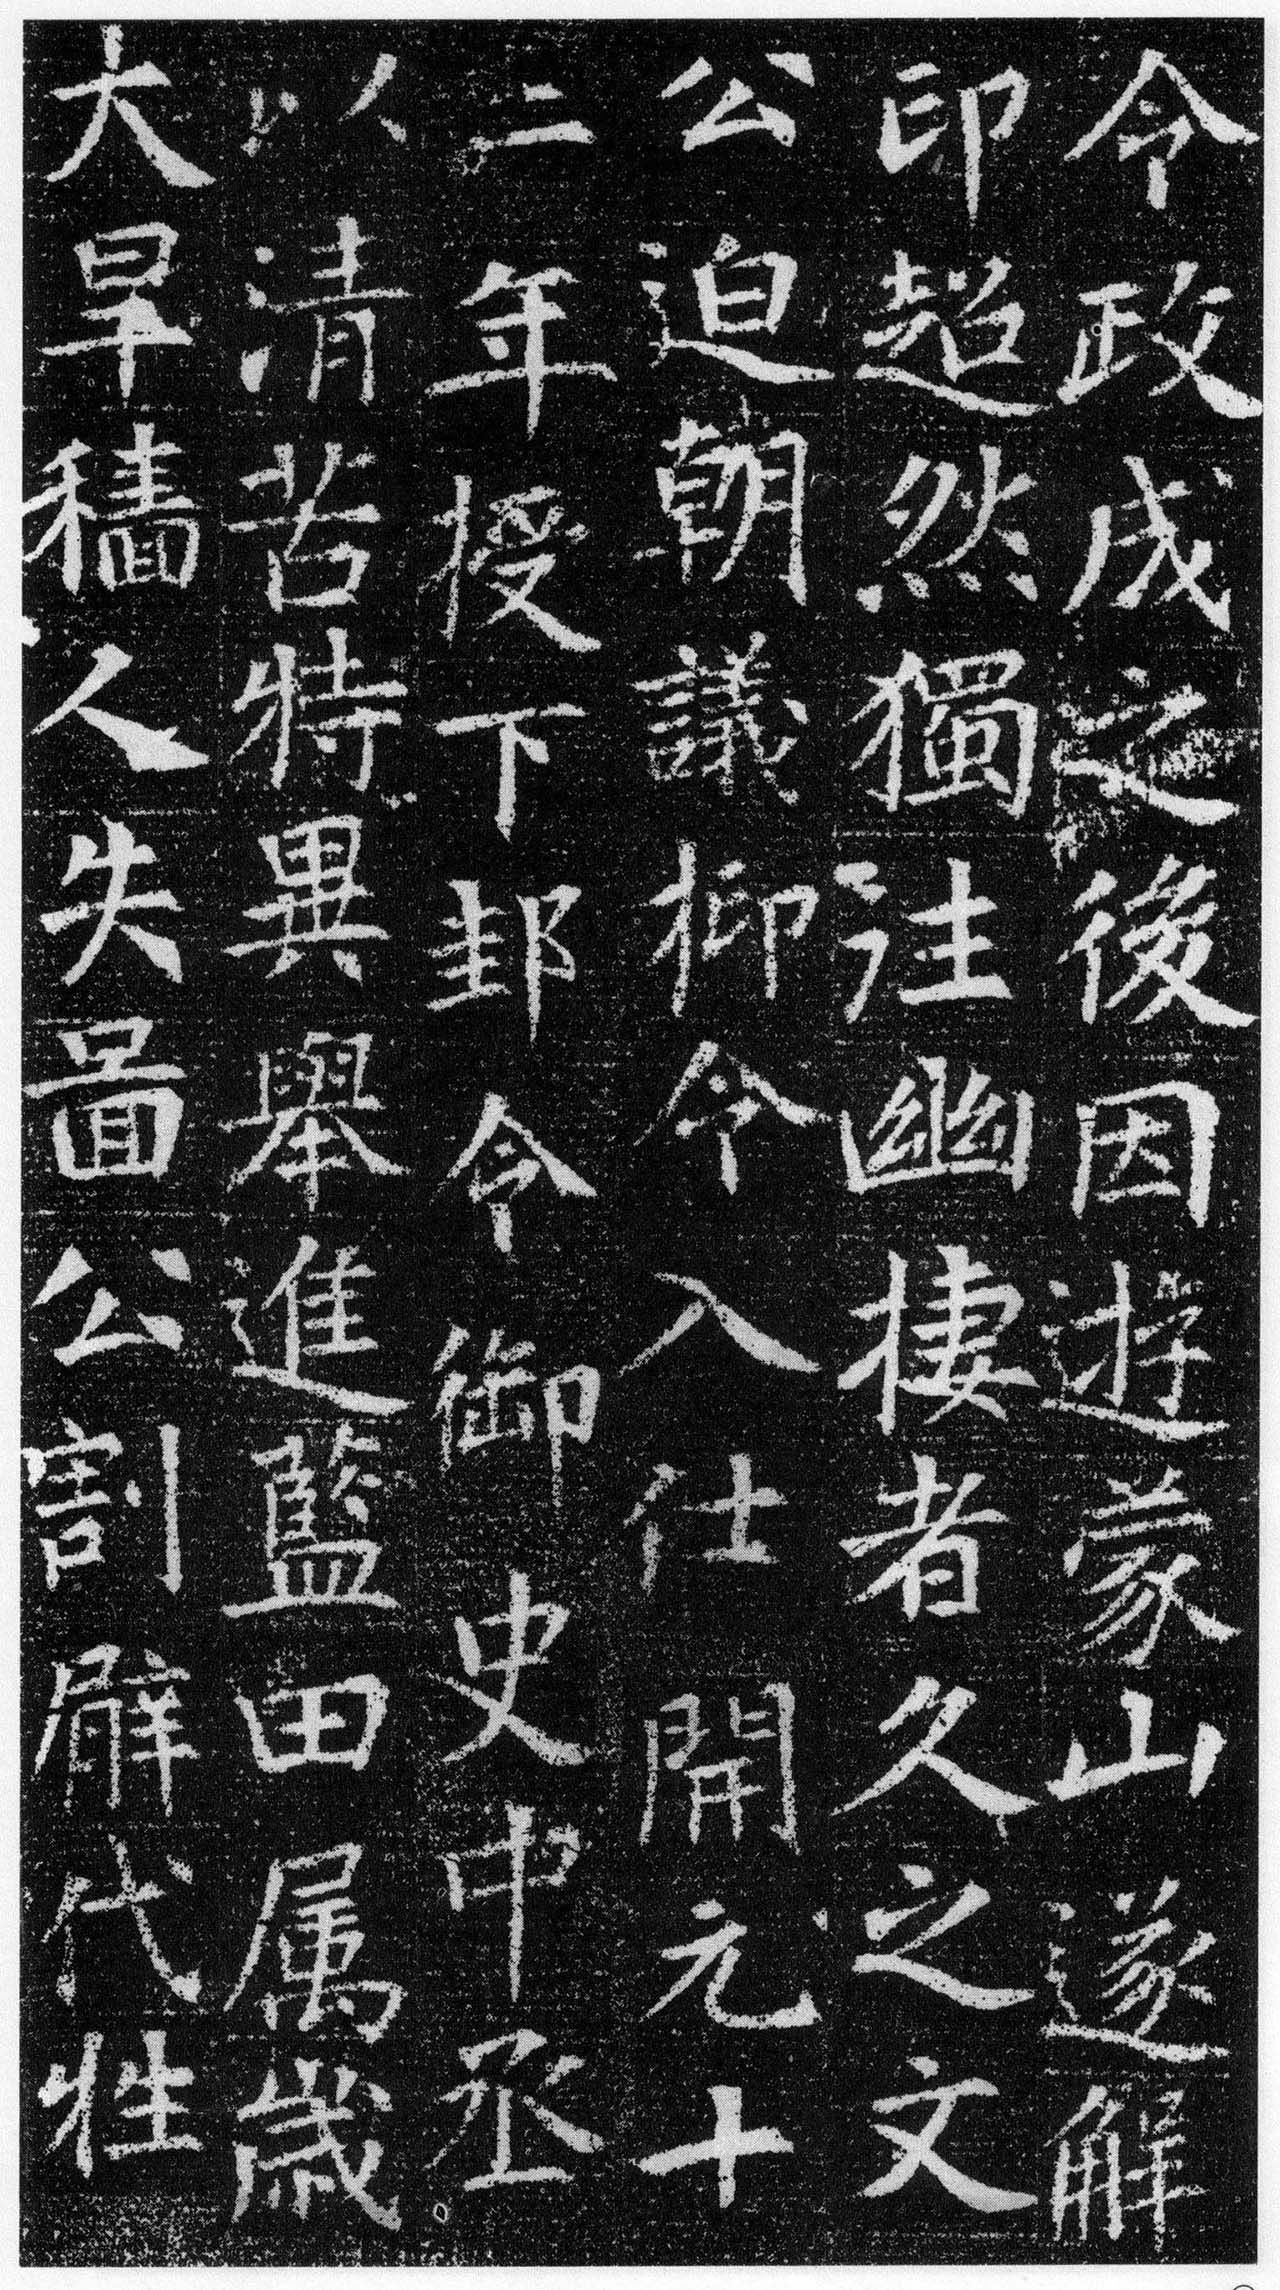 令政成之後因遊蒙山遂解
印超然獨注幽棲者久之文
公迫朝議抑令入仕開元十
二年授下邽令御史中丞
以清苦特異舉進藍田属歲
大旱穡人失啚公割臂代牲